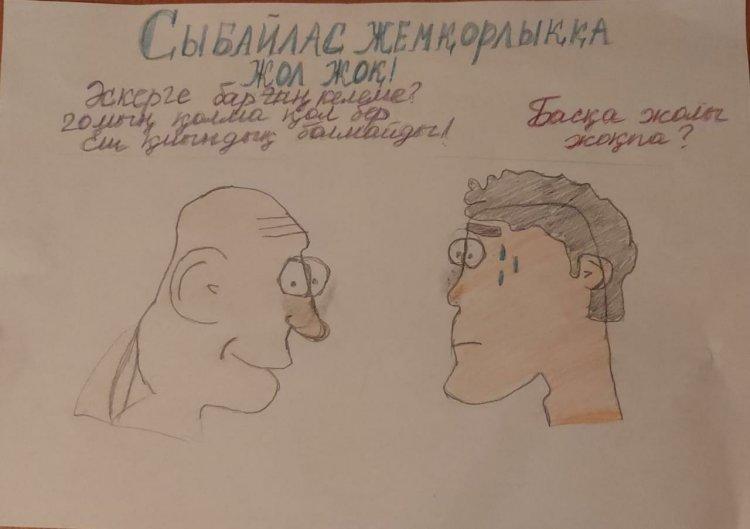 Сыбайлас жемқорлыққа
жол жоқ!
Әскерге барғың келеме?
20мың қолма қол бер
Еш қиындық болмайды!
Басқа жолы
жоқпа?